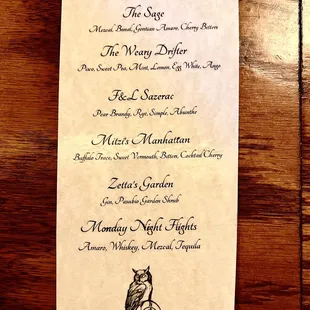 The Sage
Mezcal, Bonal, Gentian Amaro, Cherry Bitters
The Weary Drifter
Pisco, Sweet Pea, Mint, Lemon, Egg White, Ango
F&L Sazerac
Pear Brandy, Rye, Simple, Absinthe
Mitzi's Manhattan
Buffalo Trace, Sweet Vermouth, Bitters, Cocktail Cherry
Zetta's Garden
Gin, Pasubio Garden Shrub
Monday Night Flights
Amaro, Whiskey, Mezcal, Tequila